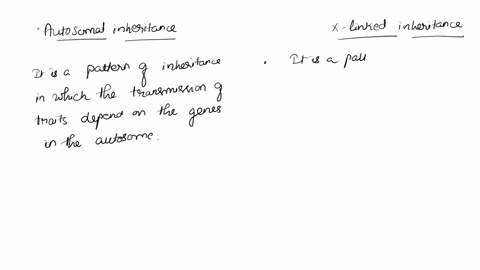 · Autosomal inheritance
It is a pattern of inheritance
in which the transmission of
traits depend on the genes
in the autosome.
X-linked inheritance
· It is a patt